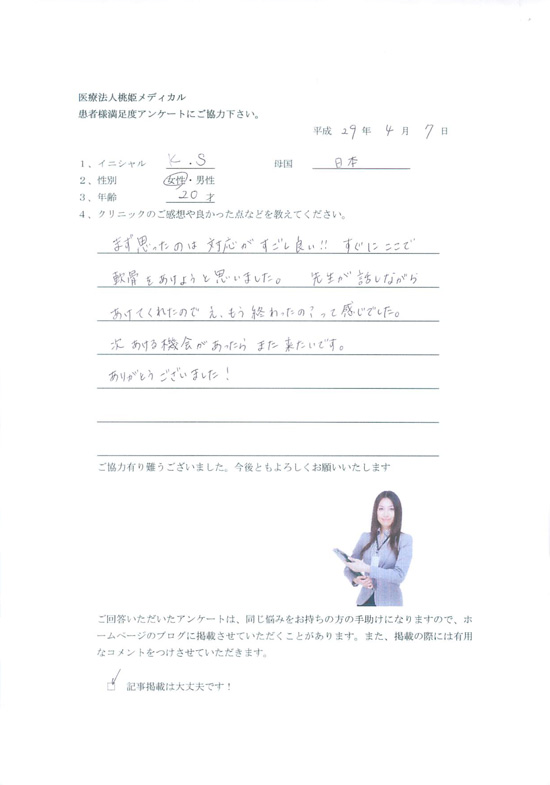 医療法人桃姫メディカル
患者様満足度アンケートにご協力下さい。
平成 29 年 4 月 7 日
1、イニシャル K.S 母国 日本
2、性別 女性・男性
3、年齢 20 才
4、クリニックのご感想や良かった点などを教えてください。
まず思ったのは 対応が すごし良い!! すぐに ここで
軟骨をあけようと思いました。 先生が 話しながら
あけてくれたので え、もう終わったの?って 感じでした。
次 あける機会があったら また 来たいです。
ありがとうございました!
ご協力有り難うございました。今後ともよろしくお願いいたします
ご回答いただいたアンケートは、同じ悩みをお持ちの方の手助けになりますので、ホ
ームページのブログに掲載させていただくことがあります。また、掲載の際には有用
なコメントをつけさせていただきます。
記事掲載は大丈夫です!